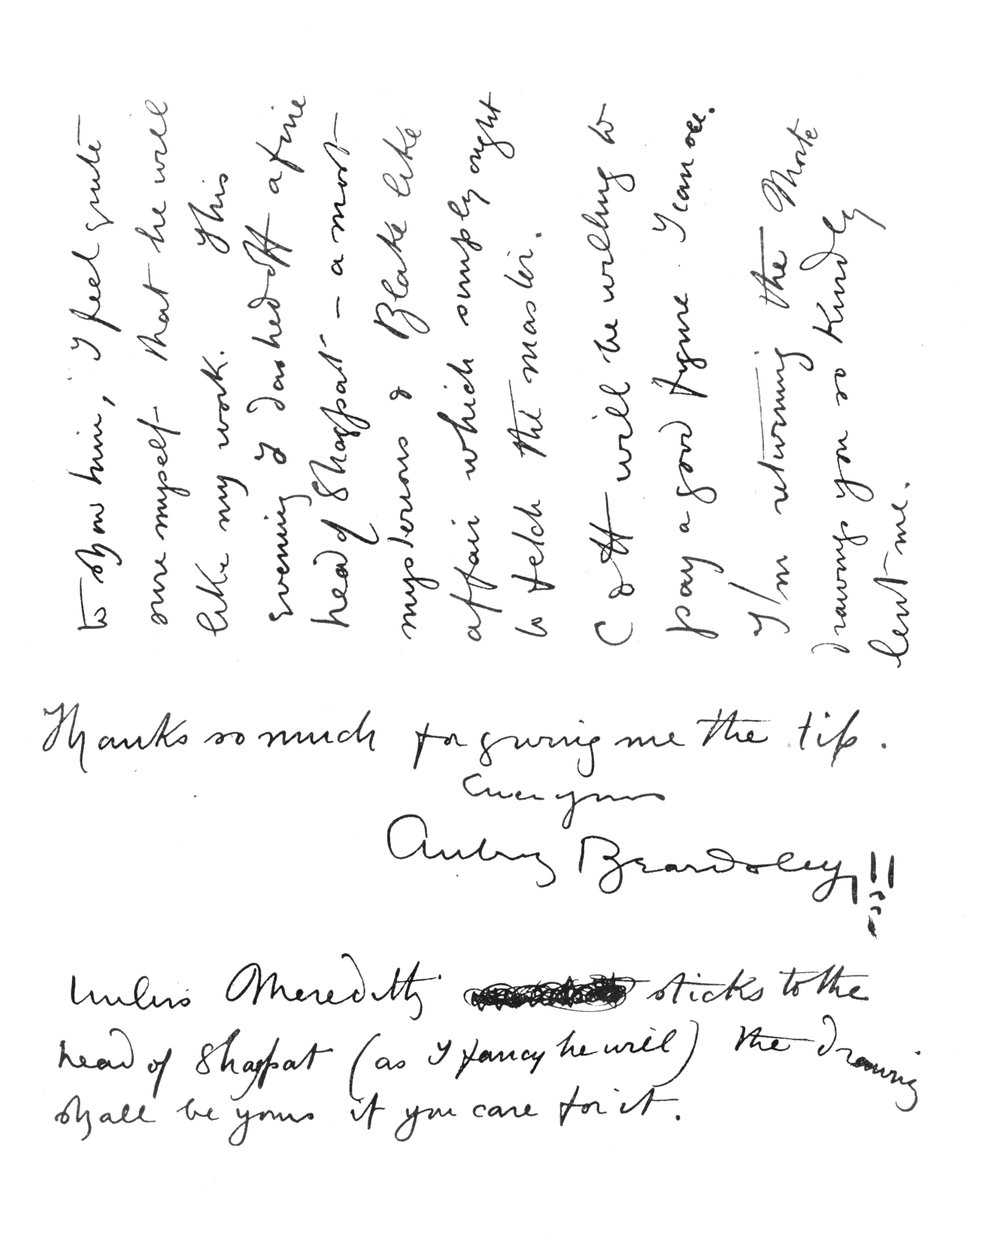 to show him, I feel quite
sure myself that he will
like my work. This
evening I dashed off a fine
head of Shagpat – a most
mysterious & Blake like
affair which simply ought
to fetch the master.
C & H will be willing to
pay a good figure I can see.
I'm returning the Morte
drawings you so kindly
lent me.
Thanks so much for giving me the tip.
Ever yours
Aubrey Beardsley!!
Unless Meredith sticks to the
head of Shagpat (as I fancy he will) the drawing
shall be yours if you care for it.